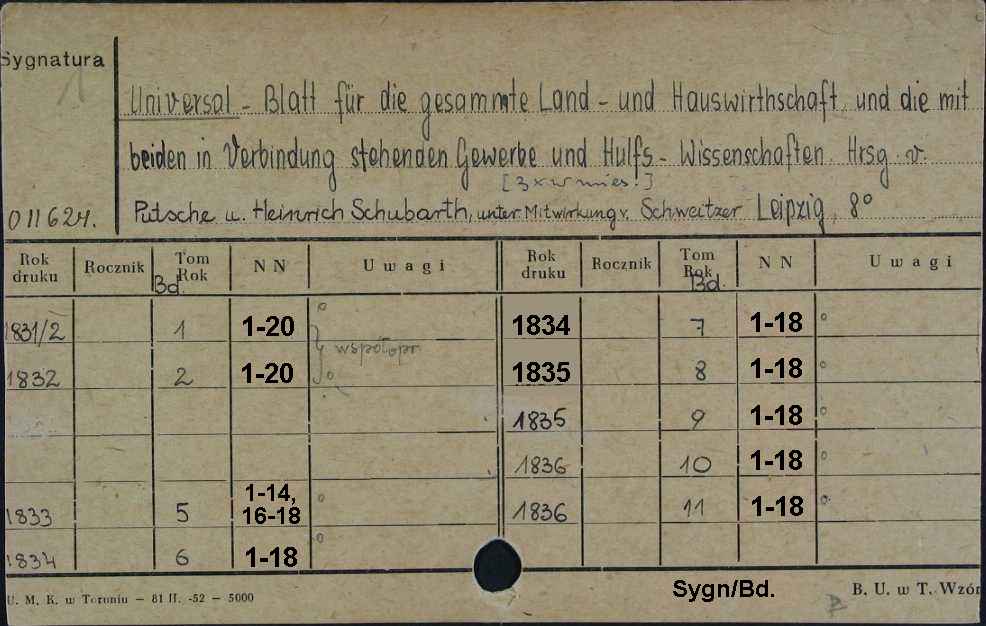 Sygnatura
Universal - Blatt für die gesammte Land - und Hauswirthschaft und die mit
beiden in Verbindung stehenden Gewerbe und Hulfs - Wissenschaften. Hrsg. v.
[3 x w mies.]
011624. Putsche u. Heinrich Schubarth, unter Mitwirkung v. Schweitzer Leipzig, 8°
Rok druku Rocznik Tom Rok Bd. N N Uwagi Rok druku Rocznik Tom Rok Bd. N N Uwagi
1831/2 1 1-20 ° 1834 7 1-18 °
współopr.
1832 2 1-20 ° 1835 8 1-18 °
1835 9 1-18 °
1836 10 1-18 °
1833 5 1-14, 16-18 ° 1836 11 1-18 °
1834 6 1-18 °
Sygn/Bd.
U. M. K. w Toruniu – 81 II. -52 – 5000 B. U. w T. Wzór